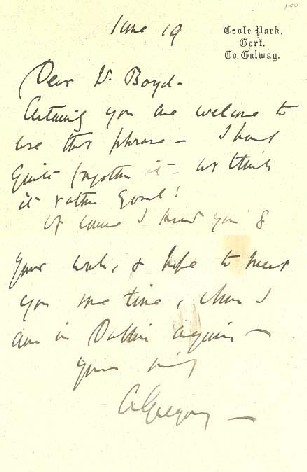 June 19
Coole Park,
Gort,
Co. Galway.
Dear Mr Boyd -
Certainly you are welcome to
use this phrase - I had
quite forgotten it - & think
it rather good!
Of course I know you &
your work, & hope to meet
you some time, when I
am in Dublin again -
Yours
A Gregory -